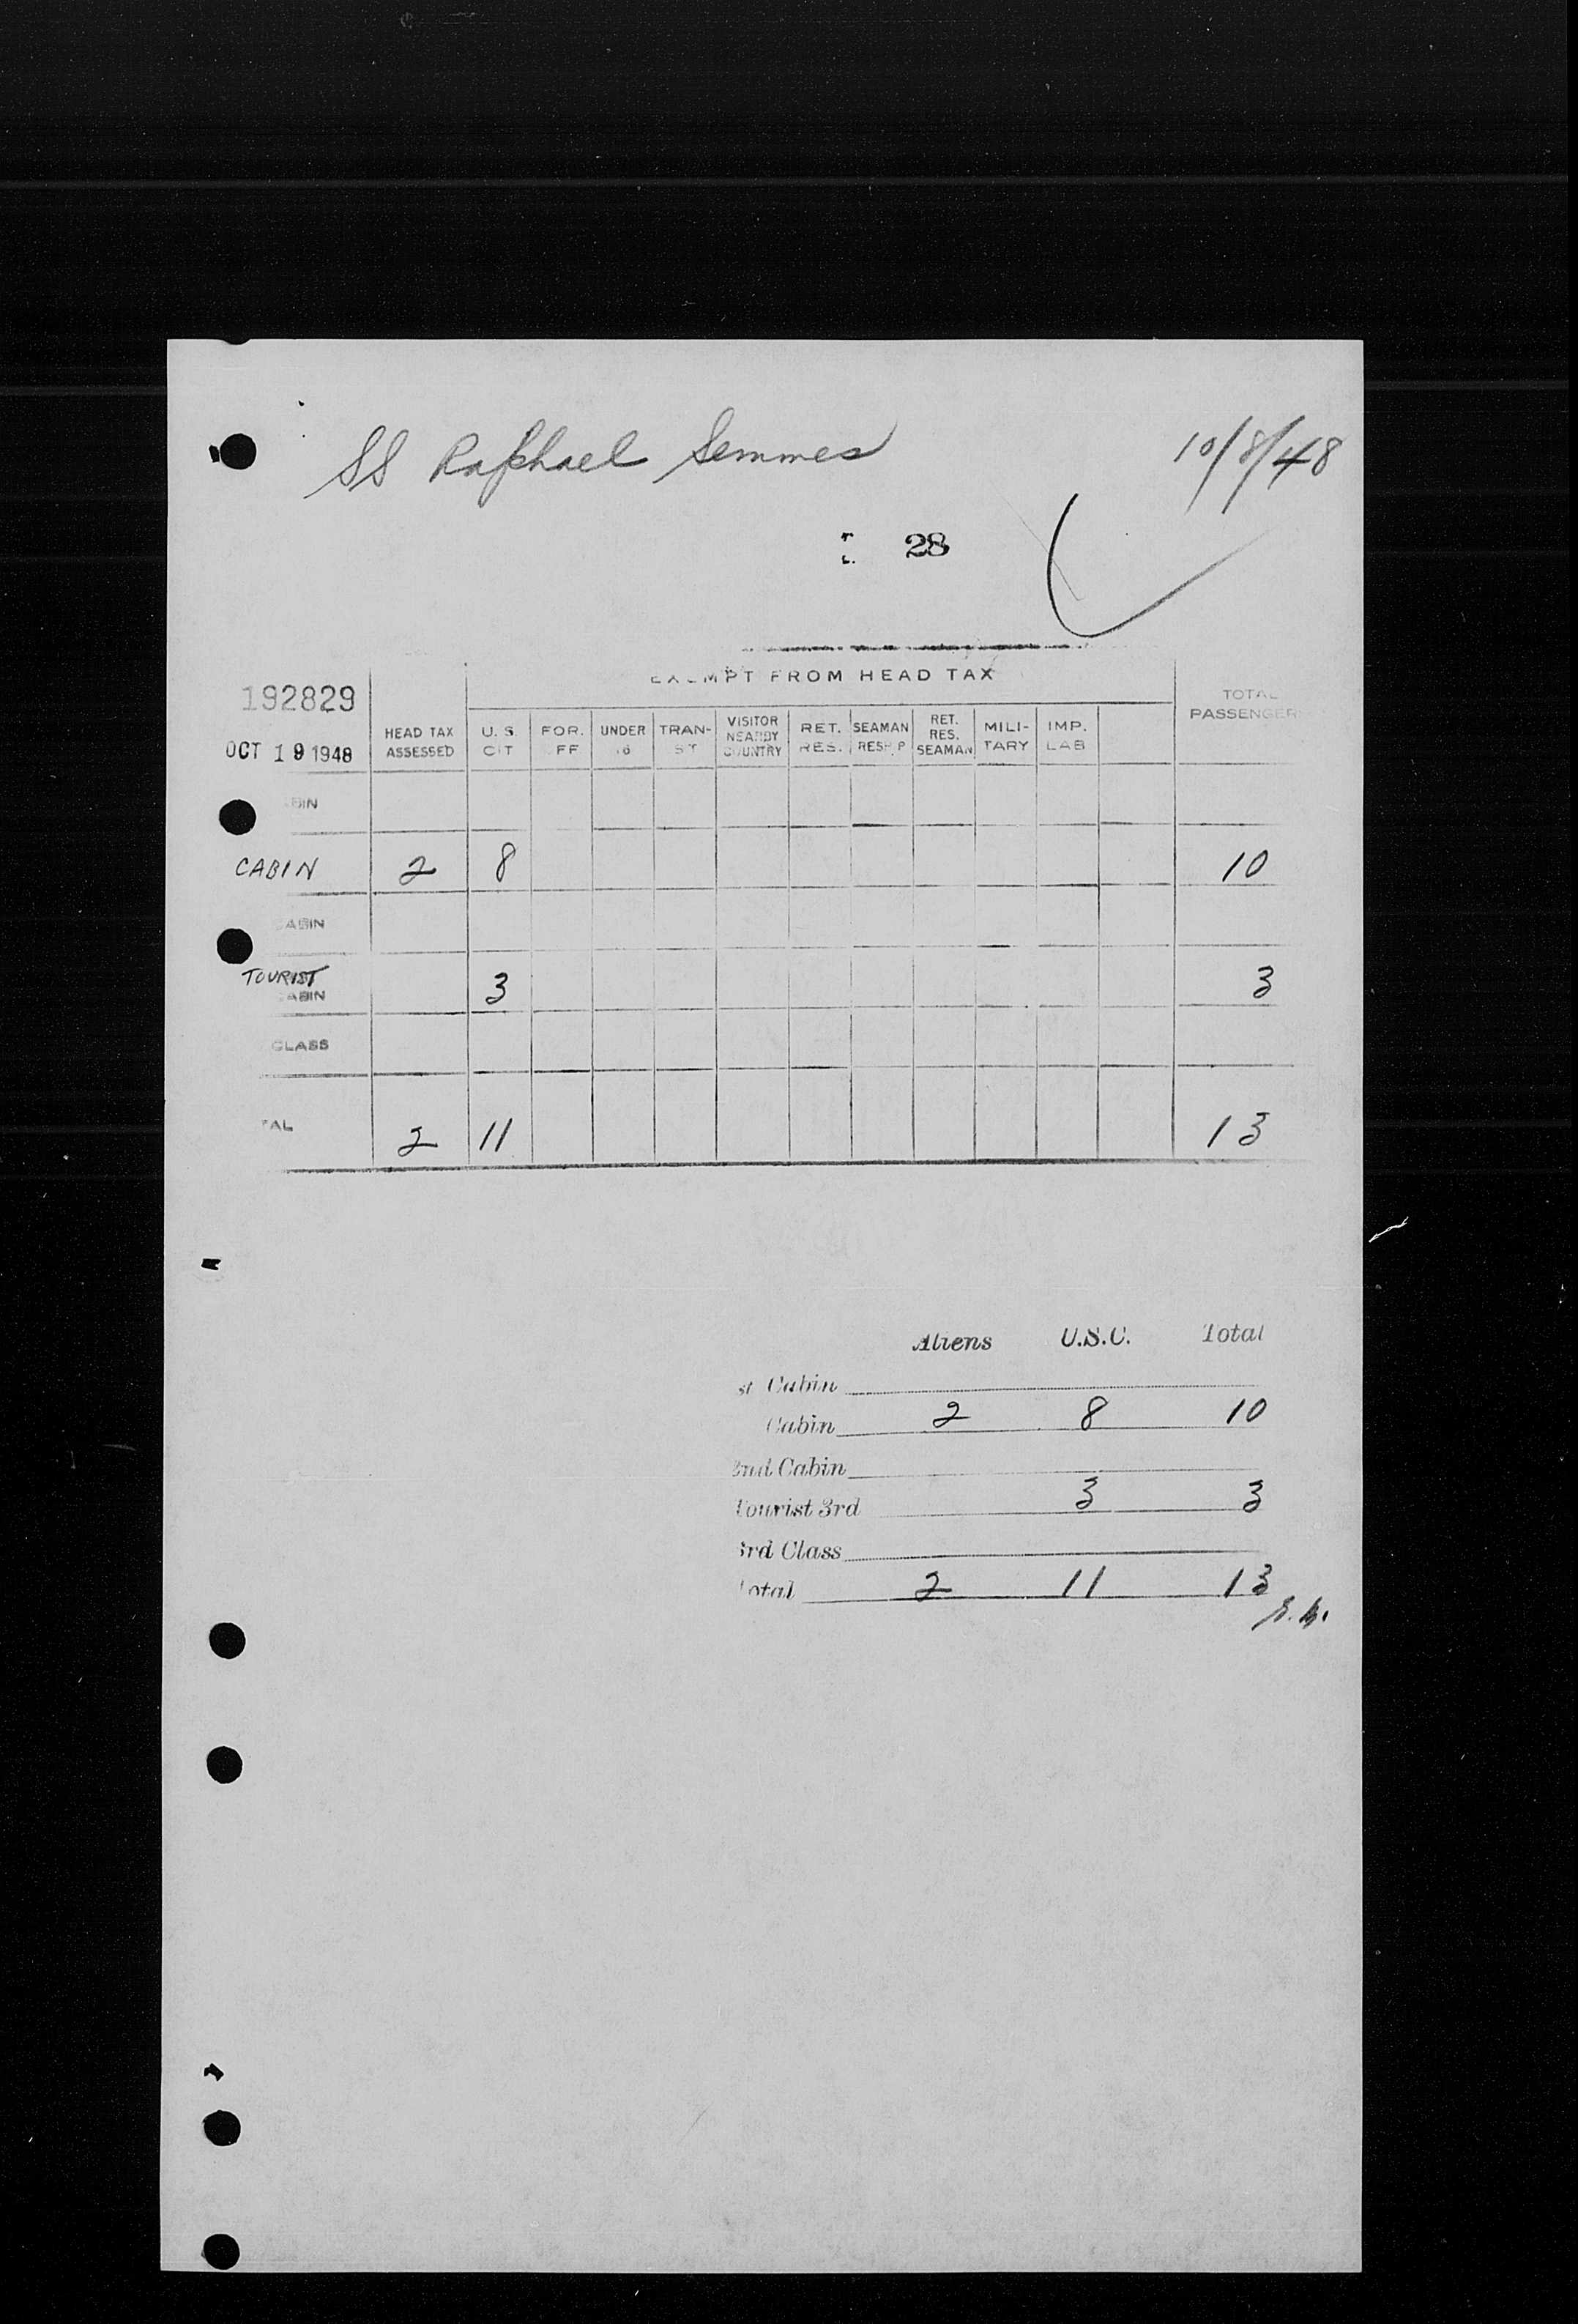 SS Raphael Semmes 10/8/48
28
EXEMPT FROM HEAD TAX
192829
OCT 19 1948
HEAD TAX ASSESSED
U.S. CIT
FOR. FF
UNDER 16
TRAN- S T
VISITOR NEARBY COUNTRY
RET. RES.
SEAMAN RESH P
RET. RES. SEAMAN
MILI- TARY
IMP. LAB
TOTAL PASSENGER
BIN
CABIN 2 8 10
ABIN
TOURIST 3 3
ABIN
CLASS
TAL 2 11 13
Aliens U.S.C. Total
st Cabin
Cabin 2 8 10
2nd Cabin
Tourist 3rd 3 3
3rd Class
Total 2 11 13